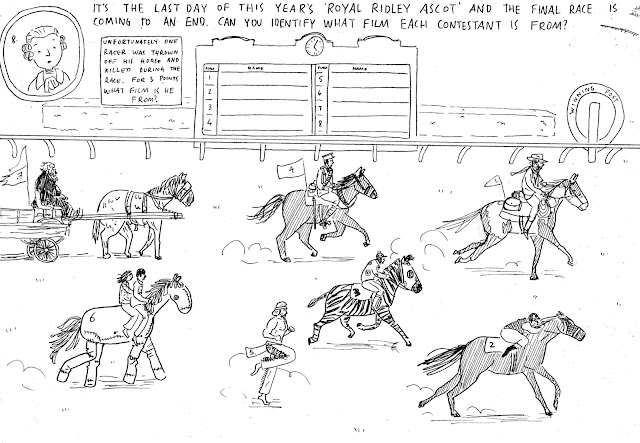 IT'S THE LAST DAY OF THIS YEAR'S 'ROYAL RIDLEY ASCOT' AND THE FINAL RACE IS
COMING TO AN END. CAN YOU IDENTIFY WHAT FILM EACH CONTESTANT IS FROM?
8.
UNFORTUNATELY ONE
RACER WAS THROWN
OFF HIS HORSE AND
KILLED DURING THE
RACE. FOR 3 POINTS
WHAT FILM IS HE
FROM?
NAME
NAME
1
2
3
4
5
6
7
8
WINNING POST
4
2